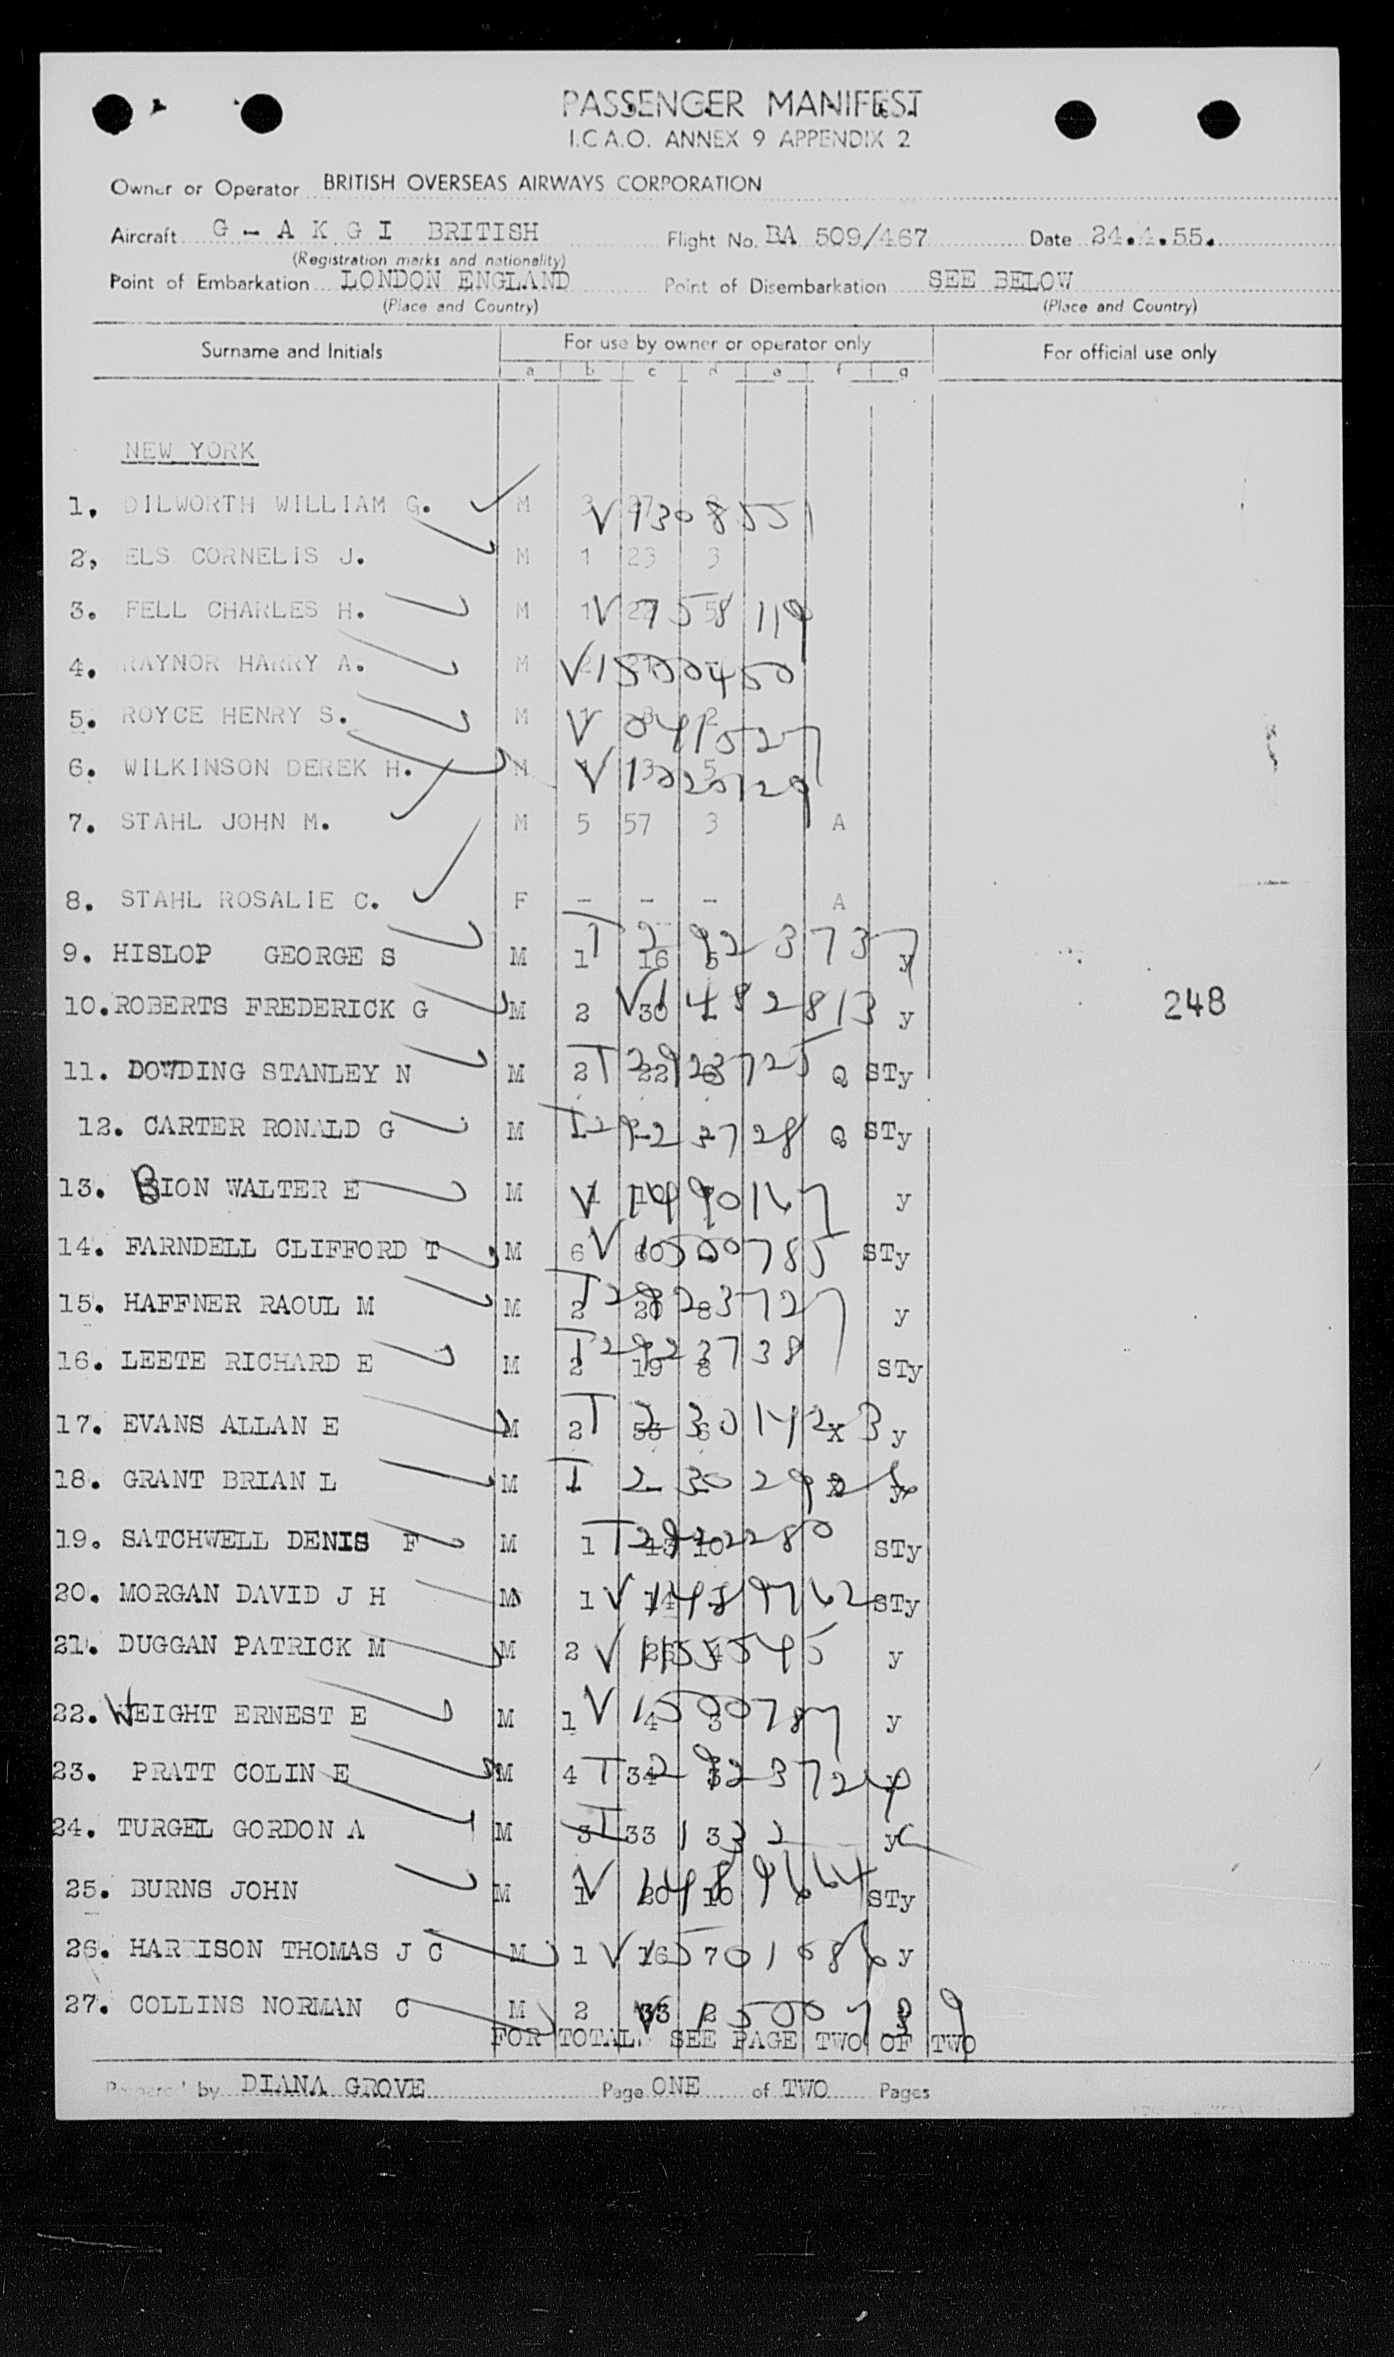 PASSENGER MANIFEST
I.C.A.O. ANNEX 9 APPENDIX 2
Owner or Operator BRITISH OVERSEAS AIRWAYS CORPORATION
Aircraft G - A K G I BRITISH Flight No. BA 509/467 Date 24.4.55.
(Registration marks and nationality)
Point of Embarkation LONDON ENGLAND Point of Disembarkation SEE BELOW
(Place and Country) (Place and Country)
Surname and Initials For use by owner or operator only For official use only
a b c d e f g
NEW YORK
1. DILWORTH WILLIAM G. M V1308551
2, ELS CORNELIS J. M 1 23 3
3. FELL CHARLES H. M V 758119
4. RAYNOR HARRY A. M V1500450
5. ROYCE HENRY S. M V 0411527
6. WILKINSON DEREK H. M V 1020129
7. STAHL JOHN M. M 5 57 3 A
8. STAHL ROSALIE C. F - - - A
9. HISLOP GEORGE S M 1 16 5 T2923737 y
10. ROBERTS FREDERICK G M 2 30 V1482813 y 248
11. DOWDING STANLEY N M 2 22 6 T2923725 Q STy
12. CARTER RONALD G M T2923728 Q STy
13. BION WALTER E M V 1490167 y
14. FARNDELL CLIFFORD T M 6 V 1500785 STy
15. HAFFNER RAOUL M M 2 20 8 T2923727 y
16. LEETE RICHARD E M 2 19 8 T2923738 STy
17. EVANS ALLAN E M 2 55 6 T 2301423 X y
18. GRANT BRIAN L M T 230292 y
19. SATCHWELL DENIS F M 1 10 T2922280 STy
20. MORGAN DAVID J H M 1 14 V 1489762 STy
21. DUGGAN PATRICK M M 2 26 4 V 1155545 y
22. WEIGHT ERNEST E M 1 4 3 V 1500787 y
23. PRATT COLIN E M 4 34 T 292372 y
24. TURGEL GORDON A M 3 33 3 T 1332 y
25. BURNS JOHN M 1 20 10 V 1489664 STy
26. HARRISON THOMAS J C M 1 16 7 V 1570108 y
27. COLLINS NORMAN C M 2 33 2 V 1500789
FOR TOTAL. SEE PAGE TWO OF TWO
Prepared by DIANA GROVE Page ONE of TWO Pages